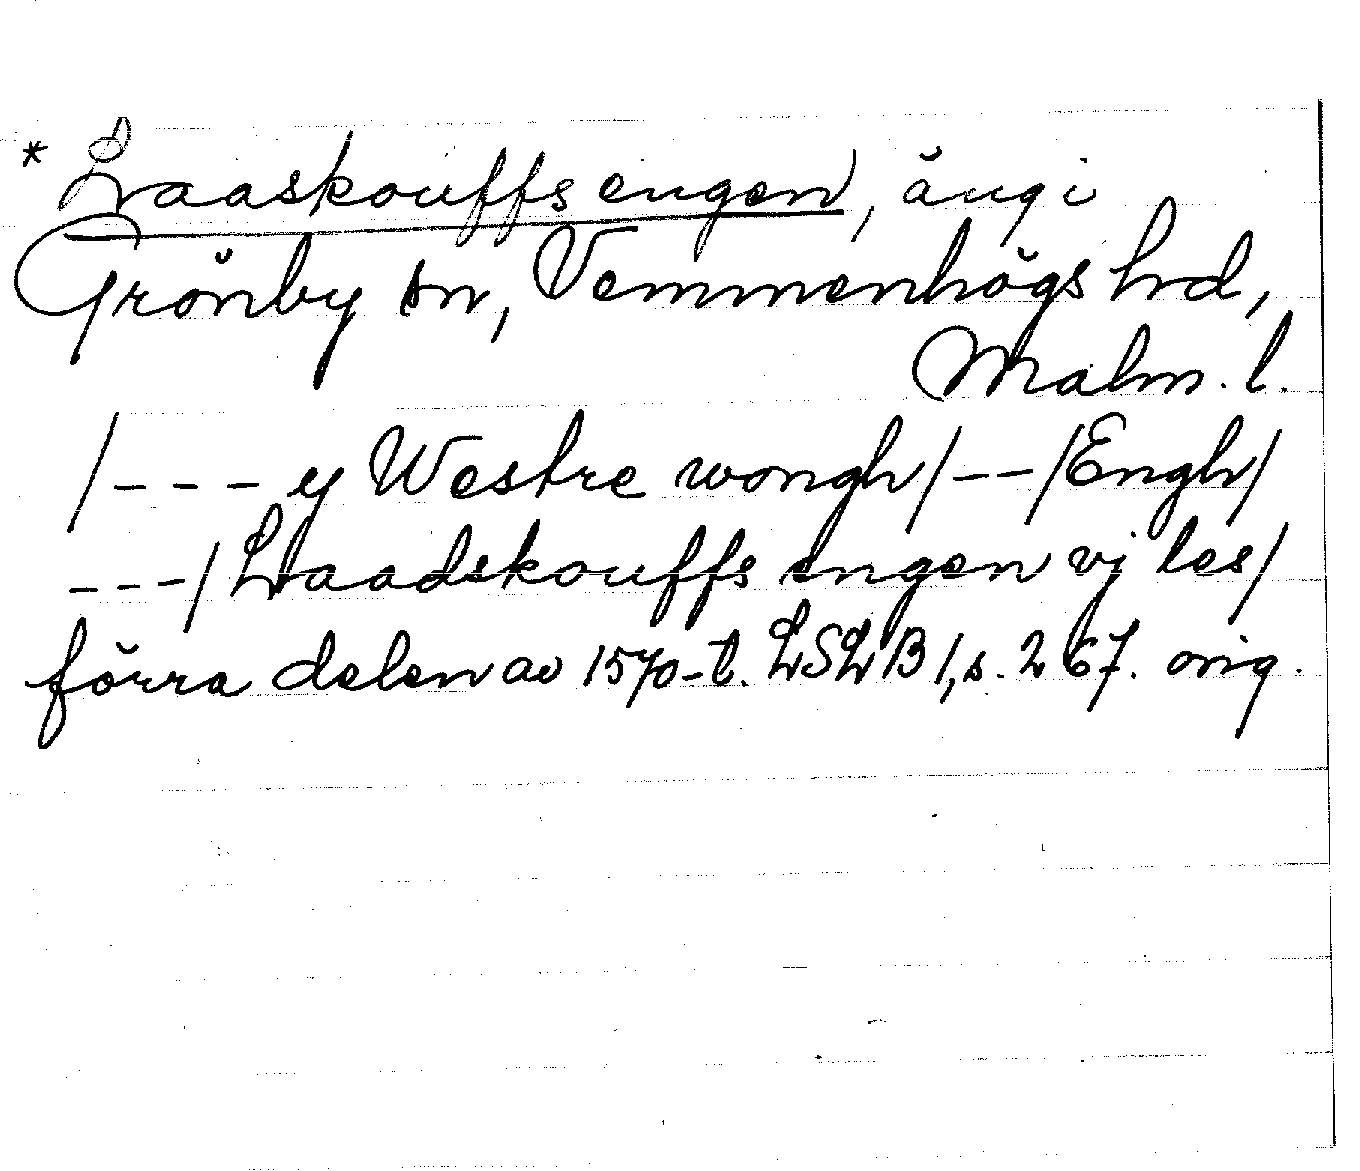 * Laaskouffs engen, äng i
Grönby sn, Vemmenhögs hrd,
Malm. l.
/--- y Westre wongh/--/Engh/
---/Laadskouffs engen vj les/
förra delen av 1570-t. LSLB 1, s. 267. orig.